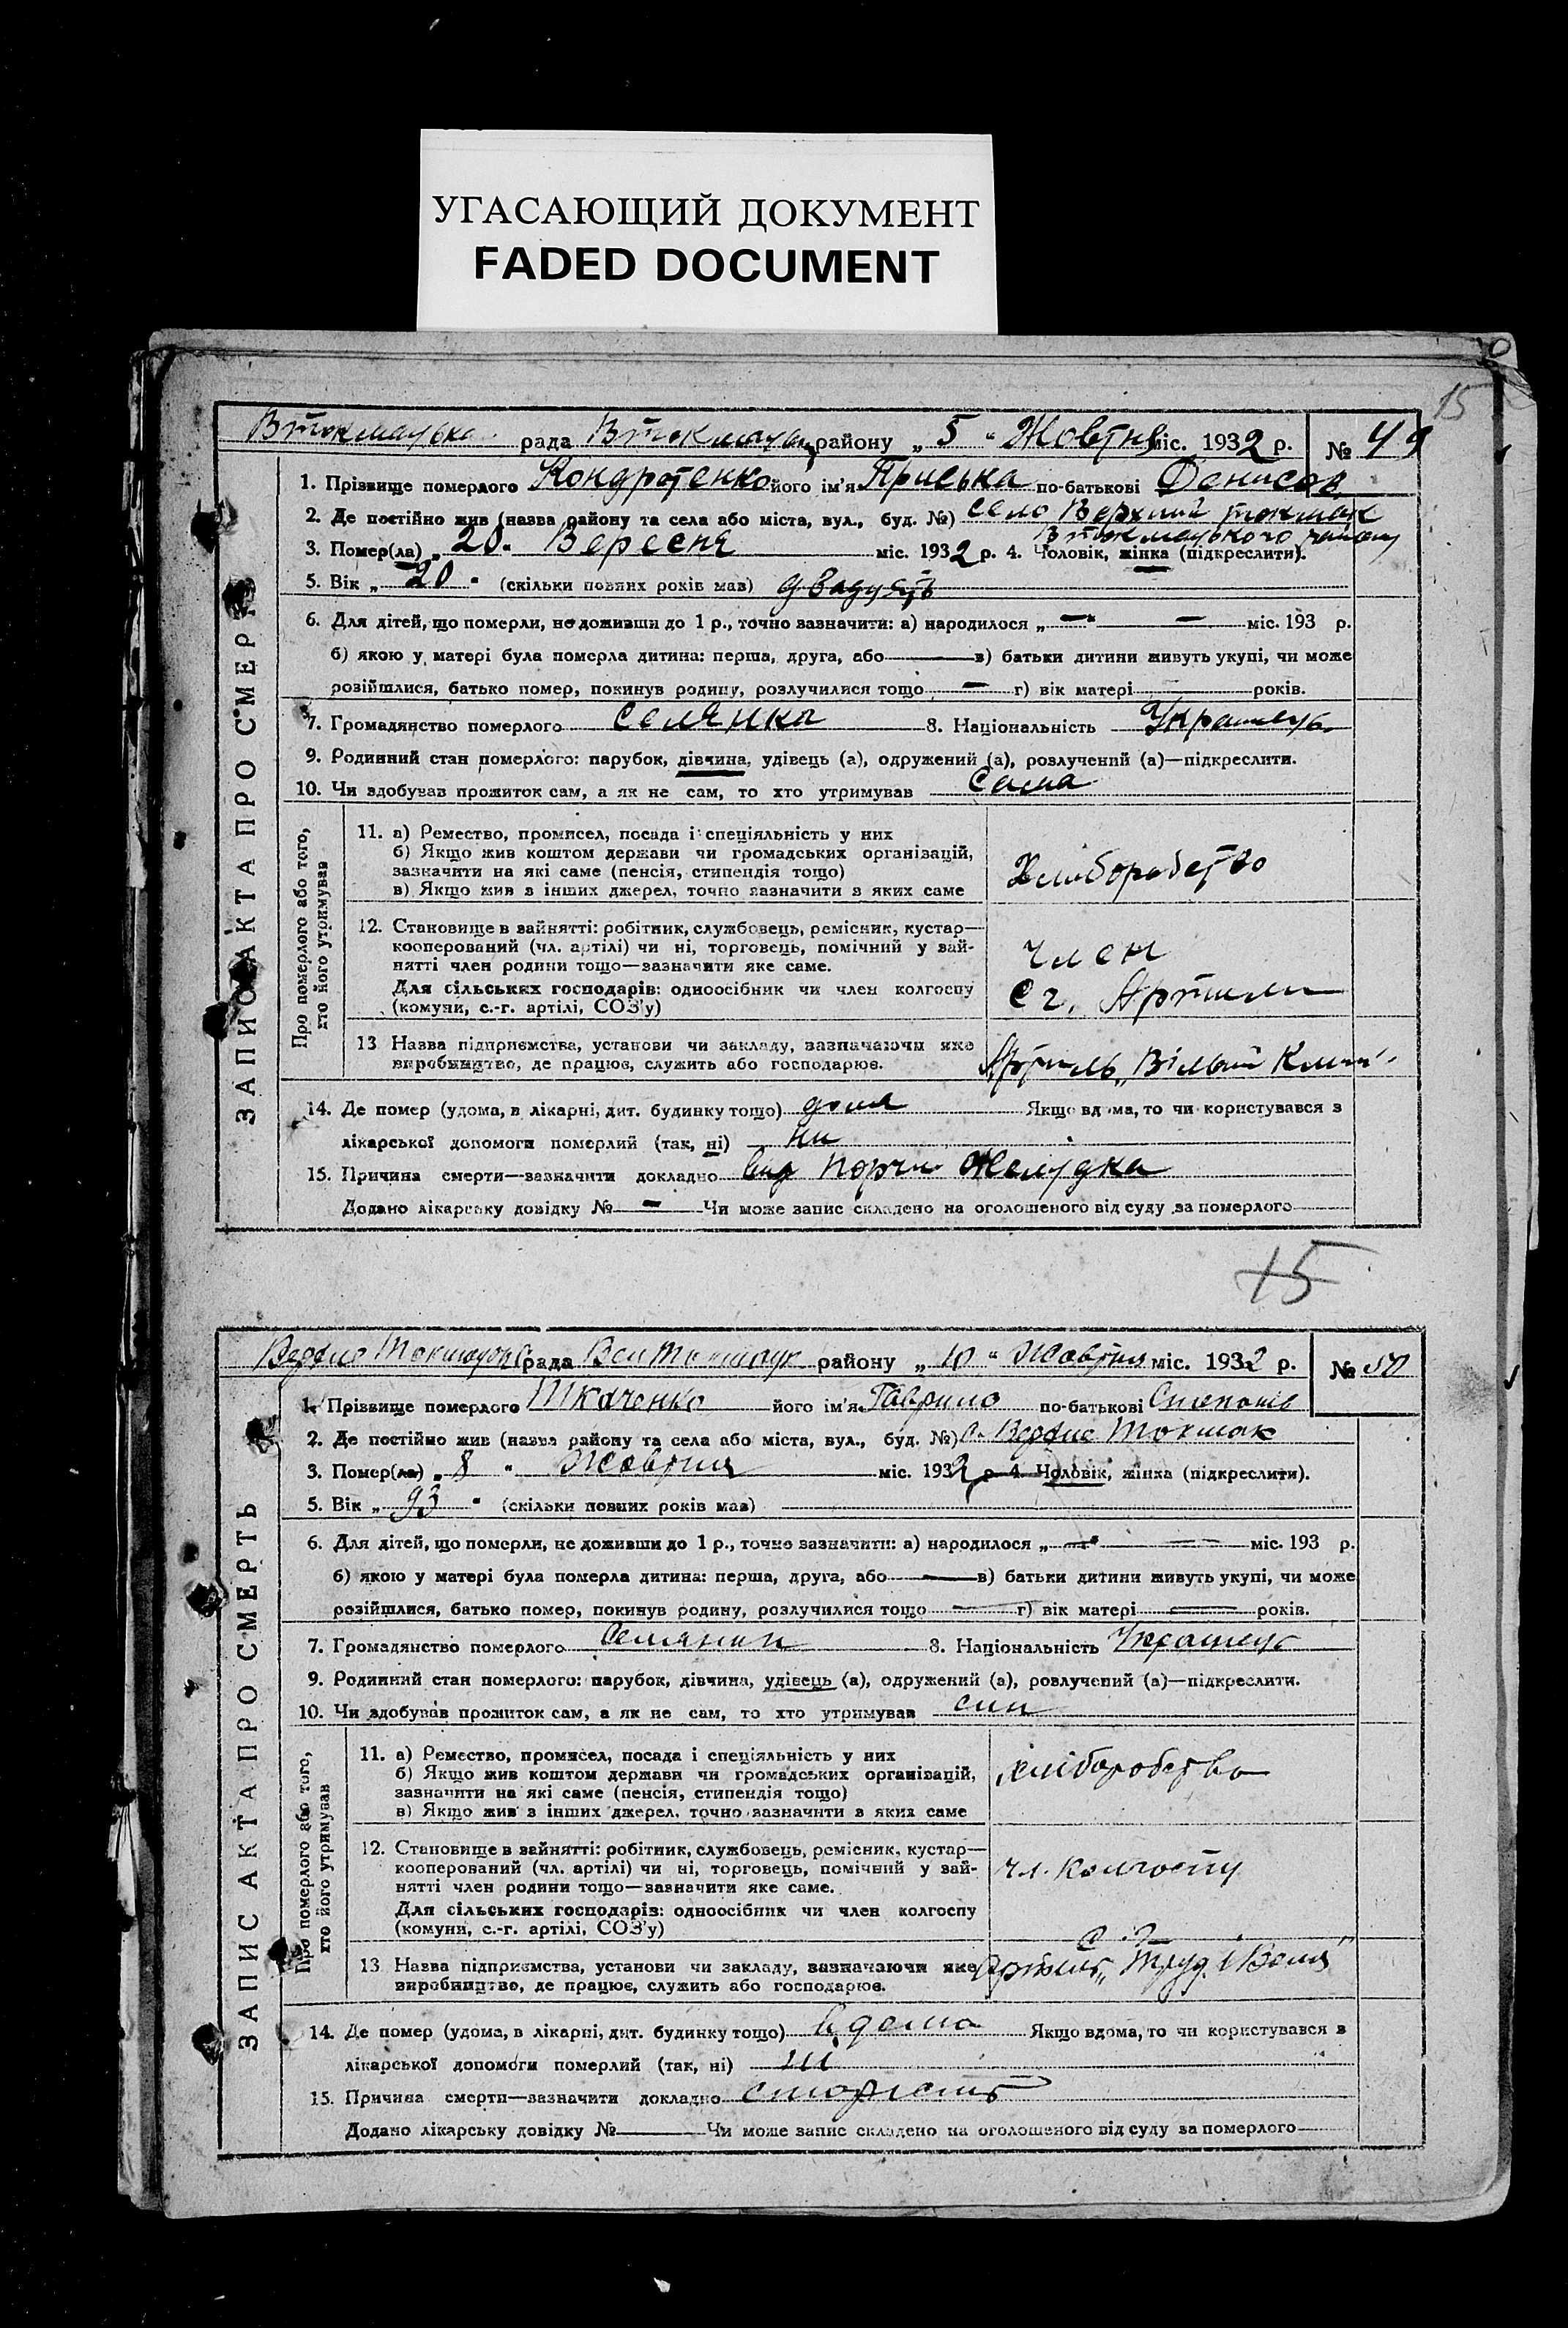 УГАСАЮЩИЙ ДОКУМЕНТ
FADED DOCUMENT
15
Втокмацька рада Втокмацьк району „ 5 “ Жовтня міс. 1932 р. № 49
1. Прізвище померлого Кондротенко його ім'я Приська по-батькові Денисов
2. Де постійно жив (назва району та села або міста, вул., буд. №) село Верхній токмак
Втокмацького району
3. Помер(ла) „ 20 “ Вересня міс. 1932 р. 4. Чоловік, жінка (підкреслити).
5. Вік „ 20 “ (скільки повних років мав) двадцять
6. Для дітей, що померли, не доживши до 1 р., точно зазначити: а) народилося „ — “ — міс. 193 р.
б) якою у матері була померла дитина: перша, друга, або — в) батьки дитини живуть укупі, чи може
розійшлися, батько помер, покинув родину, розлучилися тощо — г) вік матері — років.
7. Громадянство померлого селянка 8. Національність Українець
9. Родинний стан померлого: парубок, дівчина, удівець (а), одружений (а), розлучений (а)—підкреслити.
10. Чи здобував прожиток сам, а як не сам, то хто утримував сама
Про померлого або того,
хто його утримував
11. а) Ремество, промисел, посада і спеціяльність у них
б) Якщо жив коштом держави чи громадських організацій,
зазначити на які саме (пенсія, стипендія тощо)
в) Якщо жив з інших джерел, точно зазначити з яких саме
Хліборобство
12. Становище в зайнятті: робітник, службовець, ремісник, кустар—
кооперований (чл. артілі) чи ні, торговець, помічний у зай-
нятті член родини тощо—зазначити яке саме.
Для сільських господарів: одноосібник чи член колгоспу
(комуни, с.-г. артілі, СОЗ'у)
член
с г. Артили
13 Назва підприємства, установи чи закладу, зазначаючи яке
виробництво, де працює, служить або господарює.
Артиль „Вільний
14. Де помер (удома, в лікарні, дит. будинку тощо) дома Якщо вдома, то чи користувався з
лікарської допомоги померлий (так, ні) ни
15. Причина смерти—зазначити докладно від порчи желудка
Додано лікарську довідку № — Чи може запис складено на оголошеного від суду за померлого
ЗАПИС АКТА ПРО СМЕРТЬ
15
Верхнє Токмацька рада Вел Токмацьк району „ 10 “ Жовтня міс. 1932 р. № 50
1. Прізвище померлого Ткаченко його ім'я Гаврило по-батькові Степанів
2. Де постійно жив (назва району та села або міста, вул., буд. №) с. Верхнє Токмак
3. Помер(ла) „ 8 “ Жовтня міс. 1932 р. 4. Чоловік, жінка (підкреслити).
5. Вік „ 93 “ (скільки повних років мав)
6. Для дітей, що померли, не доживши до 1 р., точно зазначити: а) народилося „ — “ — міс. 193 р.
б) якою у матері була померла дитина: перша, друга, або — в) батьки дитини живуть укупі, чи може
розійшлися, батько помер, покинув родину, розлучилися тощо — г) вік матері — років.
7. Громадянство померлого Селянин 8. Національність Українець
9. Родинний стан померлого: парубок, дівчина, удівець (а), одружений (а), розлучений (а)—підкреслити.
10. Чи здобував прожиток сам, а як не сам, то хто утримував син
Про померлого або того,
хто його утримував
11. а) Ремество, промисел, посада і спеціяльність у них
б) Якщо жив коштом держави чи громадських організацій,
зазначити на які саме (пенсія, стипендія тощо)
в) Якщо жив з інших джерел, точно зазначити з яких саме
хліборобство
12. Становище в зайнятті: робітник, службовець, ремісник, кустар—
кооперований (чл. артілі) чи ні, торговець, помічний у зай-
нятті член родини тощо—зазначити яке саме.
Для сільських господарів: одноосібник чи член колгоспу
(комуни, с.-г. артілі, СОЗ'у)
чл. колгоспу
13 Назва підприємства, установи чи закладу, зазначаючи яке
виробництво, де працює, служить або господарює.
с. г.
Артиль „Труд і Воля“
14. Де помер (удома, в лікарні, дит. будинку тощо) вдома Якщо вдома, то чи користувався з
лікарської допомоги померлий (так, ні) ні
15. Причина смерти—зазначити докладно старість
Додано лікарську довідку № — Чи може запис складено на оголошеного від суду за померлого
ЗАПИС АКТА ПРО СМЕРТЬ